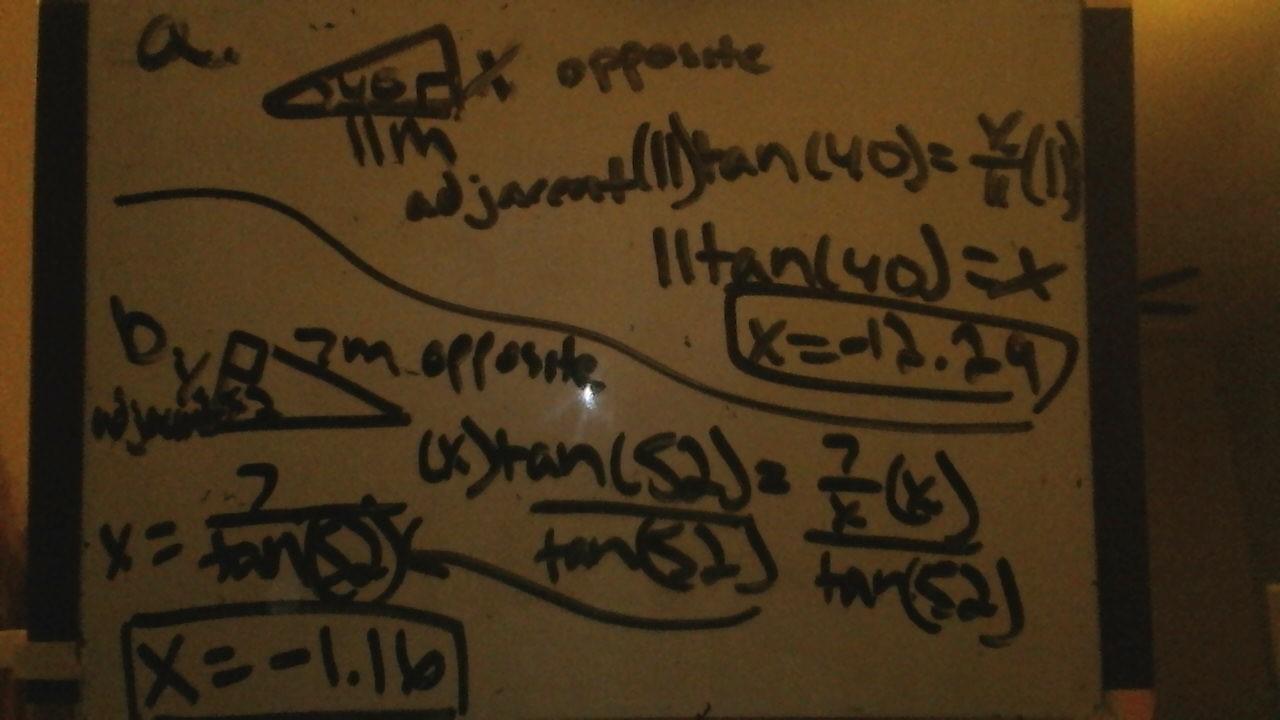 a.
40 x opposite
11m
adjacent (11)tan(40)=x/11(11)
11tan(40)=x
x=-12.29
b
x 7m opposite
adjacent 52
(x)tan(52)=7/x(x)
tan(52) tan(52)
x=7/tan(52)
x=-1.16